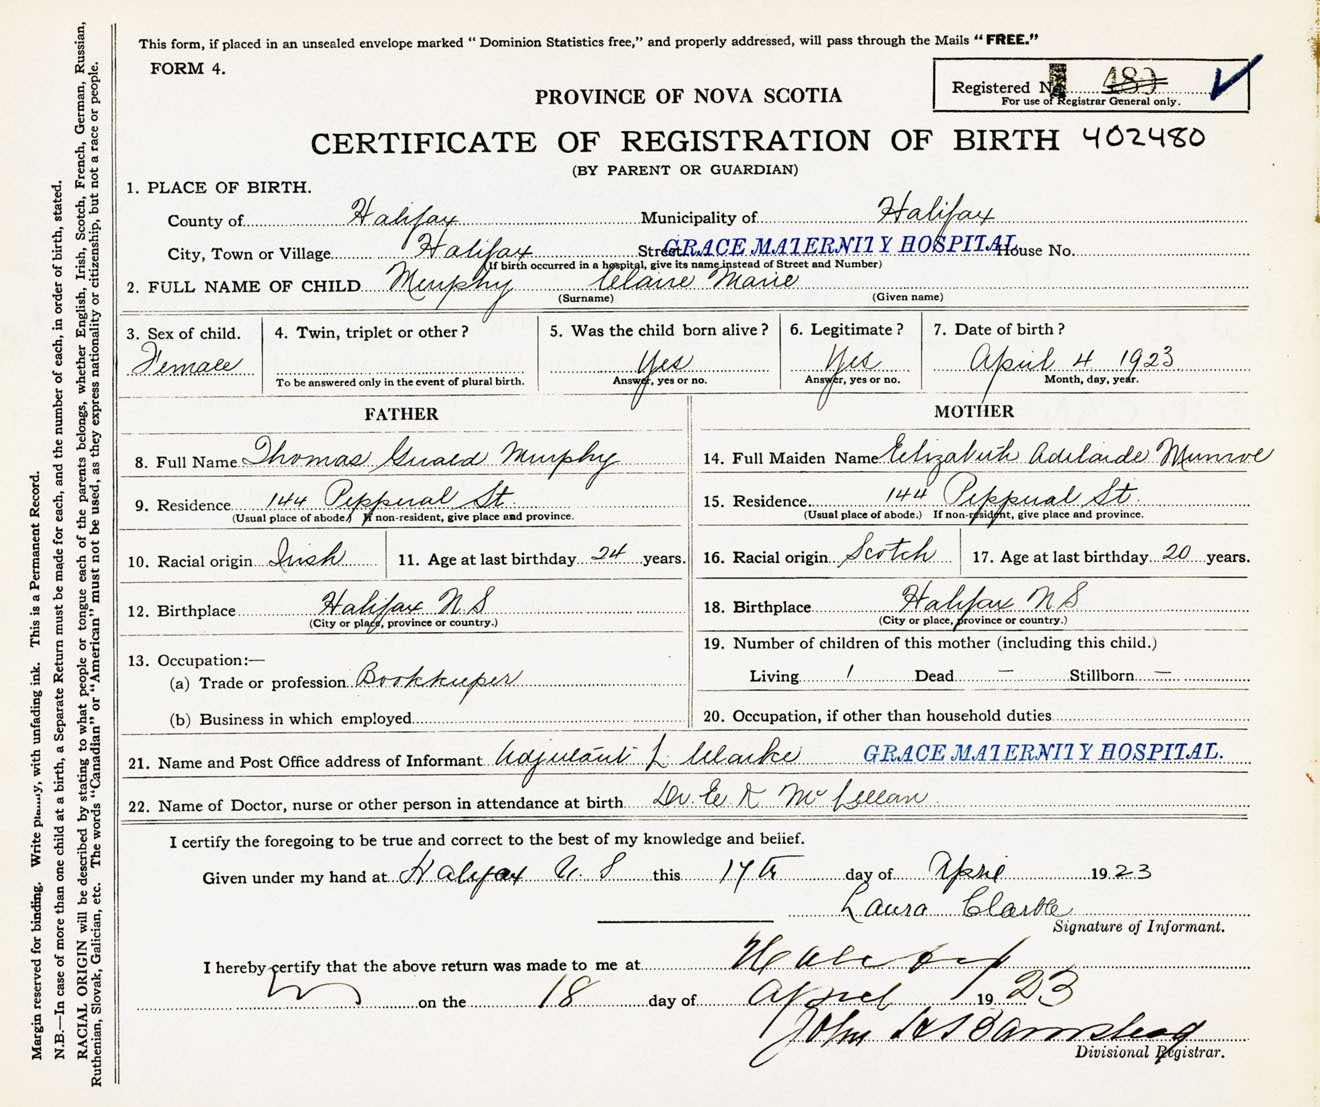 This form, if placed in an unsealed envelope marked "Dominion Statistics free," and properly addressed, will pass through the Mails "FREE."
FORM 4.
Registered No. 480
For use of Registrar General only.
PROVINCE OF NOVA SCOTIA
CERTIFICATE OF REGISTRATION OF BIRTH 402480
(BY PARENT OR GUARDIAN)
1. PLACE OF BIRTH.
County of Halifax Municipality of Halifax
City, Town or Village Halifax Street GRACE MATERNITY HOSPITAL House No.
(If birth occurred in a hospital, give its name instead of Street and Number)
2. FULL NAME OF CHILD Murphy Claire Marie
(Surname) (Given name)
3. Sex of child. 4. Twin, triplet or other? 5. Was the child born alive? 6. Legitimate? 7. Date of birth?
Female Yes Yes April 4 1923
To be answered only in the event of plural birth. Answer, yes or no. Answer, yes or no. Month, day, year.
FATHER MOTHER
8. Full Name Thomas Gerald Murphy 14. Full Maiden Name Elizabeth Adelaide Munroe
9. Residence 144 Pepperal St. 15. Residence 144 Pepperal St.
(Usual place of abode.) If non-resident, give place and province. (Usual place of abode.) If non-resident, give place and province.
10. Racial origin Irish 11. Age at last birthday 24 years. 16. Racial origin Scotch 17. Age at last birthday 20 years.
12. Birthplace Halifax N.S 18. Birthplace Halifax N S
(City or place, province or country.) (City or place, province or country.)
13. Occupation:— 19. Number of children of this mother (including this child.)
(a) Trade or profession Bookkeeper Living 1 Dead — Stillborn —
(b) Business in which employed 20. Occupation, if other than household duties
21. Name and Post Office address of Informant Adjutant L Clarke GRACE MATERNITY HOSPITAL.
22. Name of Doctor, nurse or other person in attendance at birth Dr. E K McLellan
I certify the foregoing to be true and correct to the best of my knowledge and belief.
Given under my hand at Halifax N. S this 17th day of April 1923
Laura Clarke
Signature of Informant.
I hereby certify that the above return was made to me at Halifax
on the 18 day of April 1923
John
Divisional Registrar.
Margin reserved for binding. Write with unfading ink. This is a Permanent Record.
N.B.—In case of more than one child at a birth, a Separate Return must be made for each, and the number of each, in order of birth, stated.
RACIAL ORIGIN will be described by stating to what people or tongue each of the parents belongs, whether English, Irish, Scotch, French, German, Russian,
Ruthenian, Slovak, Galician, etc. The words "Canadian" or "American" must not be used, as they express nationality or citizenship, but not a race or people.